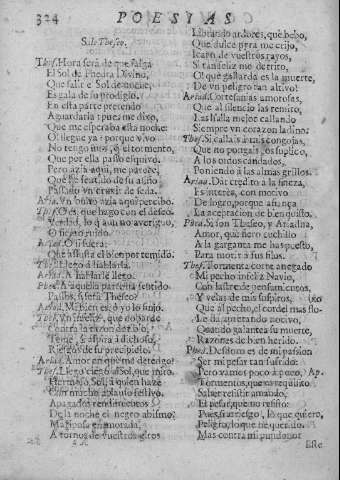 324 POESIAS
Sale Theseo.
Thes. Hora será de que salga
El Sol de Phedra Divino,
Que salir el Sol de noche,
Es gala de su prodigio.
En esta parte pretendo
Aguardarla; pues me dixo,
Que me esperaba esta noche:
O llegue ya, porque vivo
No tengo mas, q̃ el tormento,
Que por ella passo esquivo.
Pero azia aqui, me parece,
Que he sentido de su aliño
Passado vn cruxir de seda.
Aria. Vn bulto azia aqui percibo.
Thes. O es, que hago con el deseo
Verdad, lo q̃ aun no averiguo,
O siento ruido.
Ariad. O si fuera
Que assusta el bien por temido.
Thes. Llego à hablarla.
Ariad. A hablarle llego.
Phed. A aquella parte ha sentido
Passos, si será Theseo?
Ariad. Mi bien es, ò yo lo finjo.
Thes. Vn infeliz, que cobarde
Contra la razon de
Teme, si aspira à dichoso,
Riesgos de su precipicio.
Ariad. Amor en que me detengo?
Thes. Llego ciego al Sol, que miro.
Hermoso Sol, à quien haze
Con mucho aplauso festivo,
Apagados rendimientos
De la noche el negro abismo:
Mariposa enamorada,
A tornos de vuestros giros
Librando ardores, que bebo,
Que dulce pyra me erijo,
Icaro de vuestros rayos,
Si tan feliz me derrito,
O! que gallarda es la muerte,
De vn peligro tan altivo!
Ariad. Cortesanias amorosas,
Que al silencio las remito,
Las halla mejor callando
Siempre vn corazon ladino.
Thes. Si callais à mis congojas,
Que no pongais, os suplico,
A los oidos candados,
Poniendo à las almas grillos.
Ariad. Dar credito à la fineza,
Es interès, con motivo
De logro, porque afiança
La aceptacion de bien quisto.
Phed. Si son Theseo, y Ariadna,
Amor, que fiero cuchillo
A la garganta me has puesto,
Para morir à sus filos.
Thes. Tormenta corre anegado
Mi pecho infeliz Navio,
Con lastre de pensamientos,
Y velas de mis suspiros,
Que al pecho, el cordel mas flo-(xo
Le da apretando motivo,
Quando galantea su muerte,
Razones de bien herido.
Phed. Desfogo es de mi passion
Ser mi pesar tan sufrido:
Pero vamos poco à poco, Ap.
Tormentos, que no
Saber resistir amando,
El pesar, que no resisto:
Pues, si ay riesgo, lo que quiero,
Peligro, lo que he querido.
Mas contra mi pundonor
Este